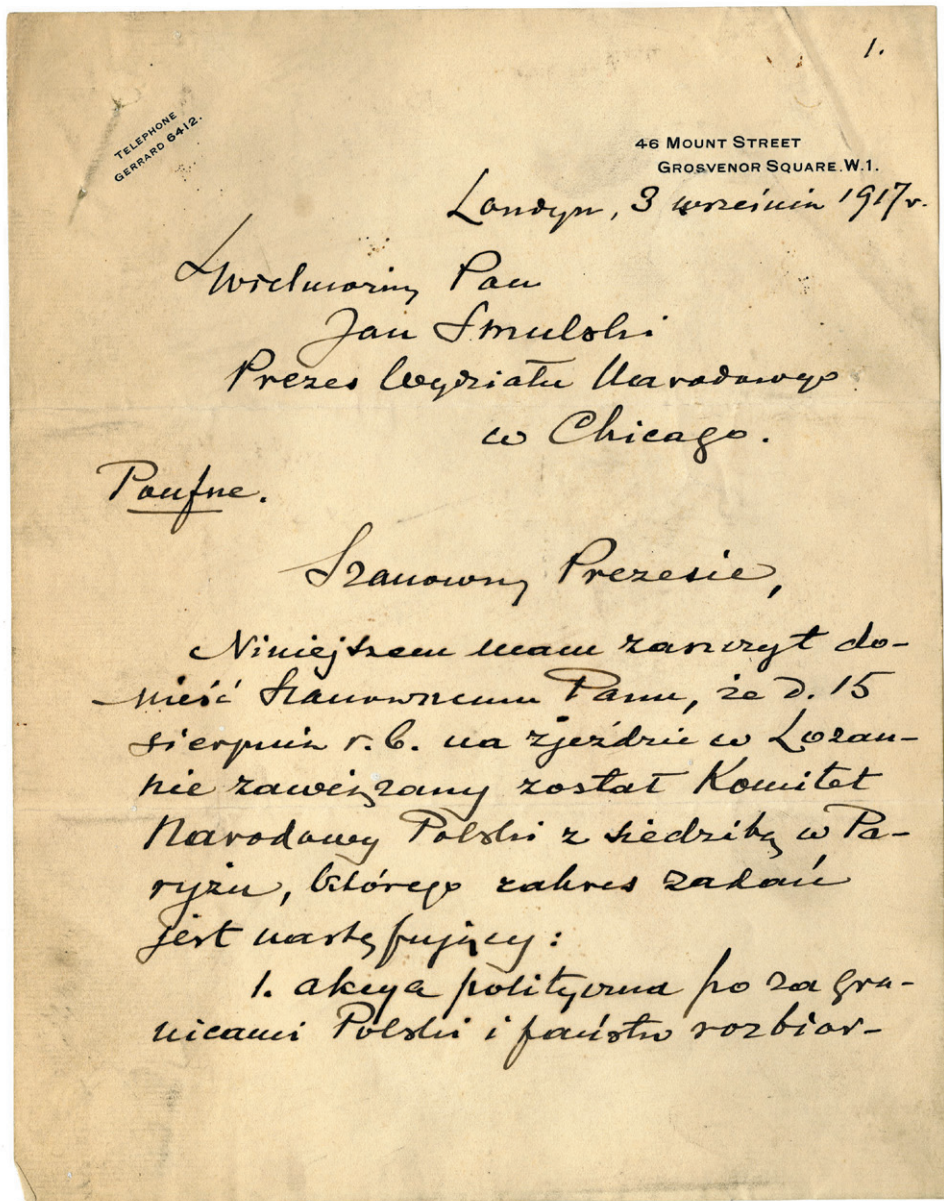 1.
TELEPHONE
GERRARD 6412.
46 MOUNT STREET
GROSVENOR SQUARE. W.1.
Londyn, 3 września 1917 r.
JWielmożny Pan
Jan Smulski
Prezes Wydziału Narodowego
w Chicago.
Poufne.
Szanowny Prezesie,
Niniejszem mam zaszczyt do-
nieść Szanownemu Panu, że d. 15
sierpnia r. b. na zjeździe w Lozan-
nie zawiązany został Komitet
Narodowy Polski z siedzibą w Pa-
ryżu, którego zakres zadań
jest następujący:
1. akcya polityczna po za gra-
nicami Polski i państw rozbior-